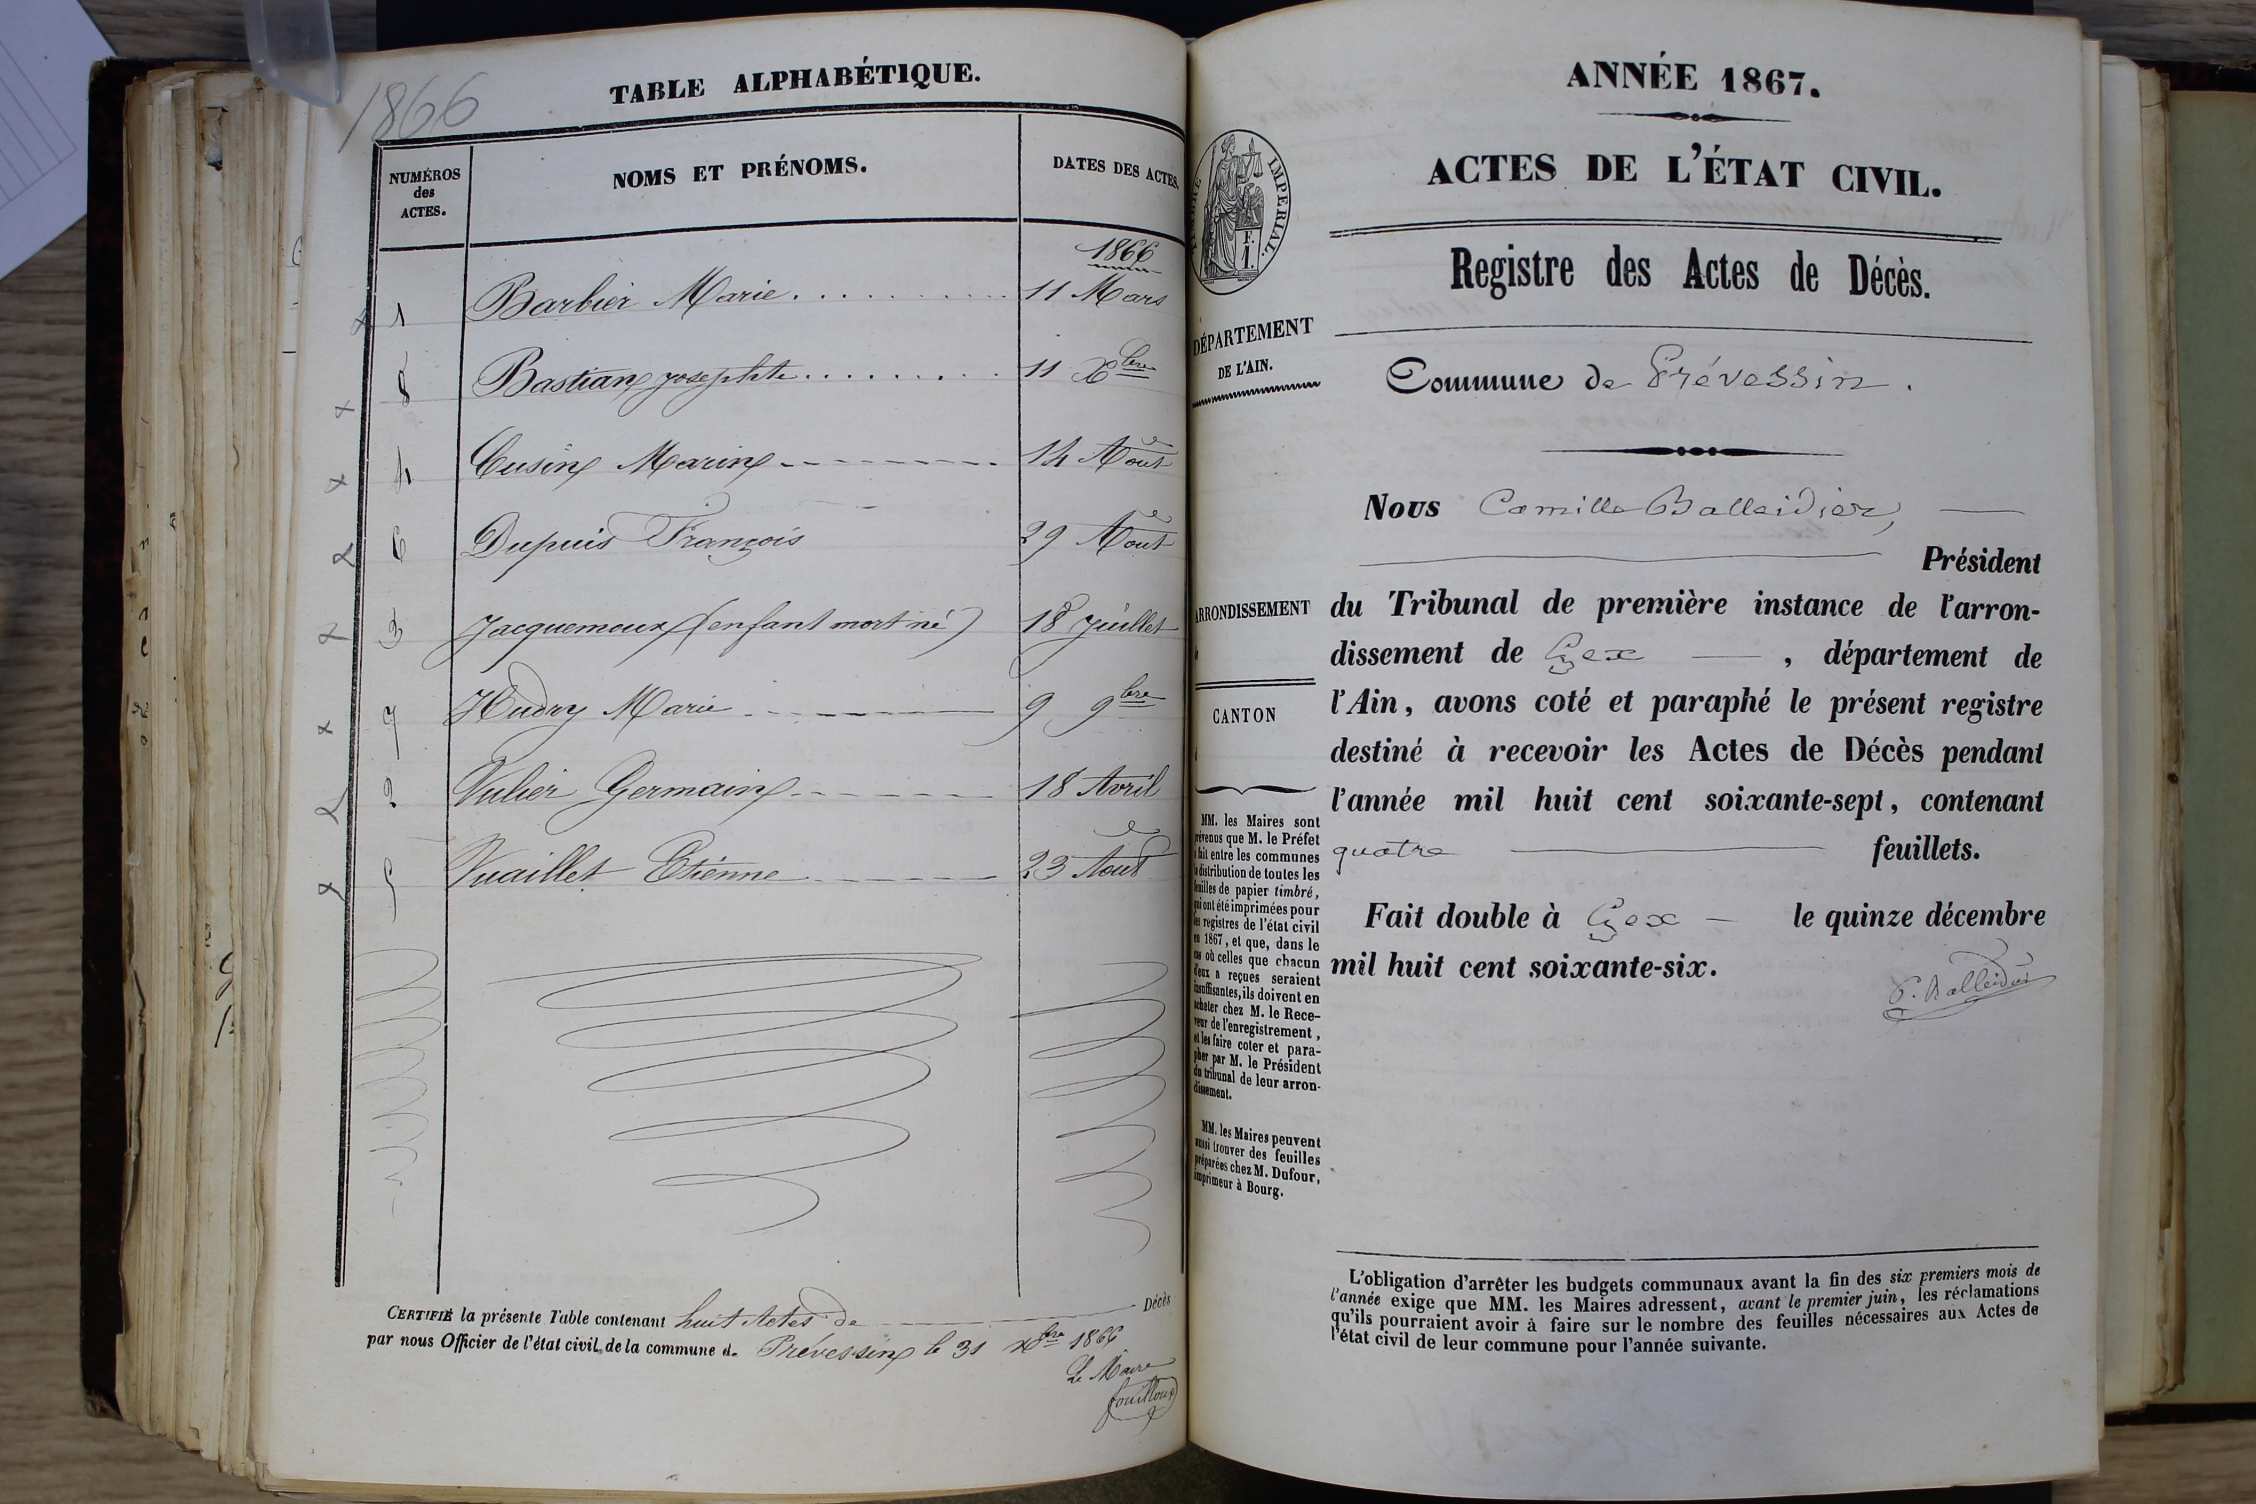 1866
TABLE ALPHABÉTIQUE.
NUMÉROS
des
ACTES.
NOMS ET PRÉNOMS.
DATES DES ACTES.
1866
1 Barbier Marie 11 Mars
8 Bastian Josephte 11 Xbre
4 Cusin Marin 14 Aout
6 Dupuis François 29 Aout
3 Jacquemoux (enfant mort né) 18 Juillet
7 Hudry Marie 9 9bre
2 Vulier Germain 18 Avril
5 Vuaillet Etienne 23 Aout
CERTIFIÉ la présente Table contenant huit Actes de Décès
par nous Officier de l'état civil de la commune d. Prévessin le 31 Xbre 1866
Le Maire
Fouilloux
ANNÉE 1867.
ACTES DE L'ÉTAT CIVIL.
TIMBRE IMPERIAL.
F.
1.
Registre des Actes de Décès.
DÉPARTEMENT
DE L'AIN.
Commune de Prévessin.
Nous Camille Balleidier,
Président
ARRONDISSEMENT
du Tribunal de première instance de l'arron-
dissement de Gex , département de
CANTON
l'Ain, avons coté et paraphé le présent registre
destiné à recevoir les Actes de Décès pendant
l'année mil huit cent soixante-sept, contenant
quatre feuillets.
Fait double à Gex le quinze décembre
mil huit cent soixante-six.
C. Balleidier
MM. les Maires sont
prévenus que M. le Préfet
a fait entre les communes
la distribution de toutes les
feuilles de papier timbré,
qui ont été imprimées pour
les registres de l'état civil
en 1867, et que, dans le
cas où celles que chacun
d'eux a reçues seraient
insuffisantes, ils doivent en
acheter chez M. le Rece-
veur de l'enregistrement,
et les faire coter et para-
pher par M. le Président
du tribunal de leur arron-
dissement.
MM. les Maires peuvent
aussi trouver des feuilles
préparées chez M. Dufour,
imprimeur à Bourg.
L'obligation d'arrêter les budgets communaux avant la fin des six premiers mois de
l'année exige que MM. les Maires adressent, avant le premier juin, les réclamations
qu'ils pourraient avoir à faire sur le nombre des feuilles nécessaires aux Actes de
l'état civil de leur commune pour l'année suivante.